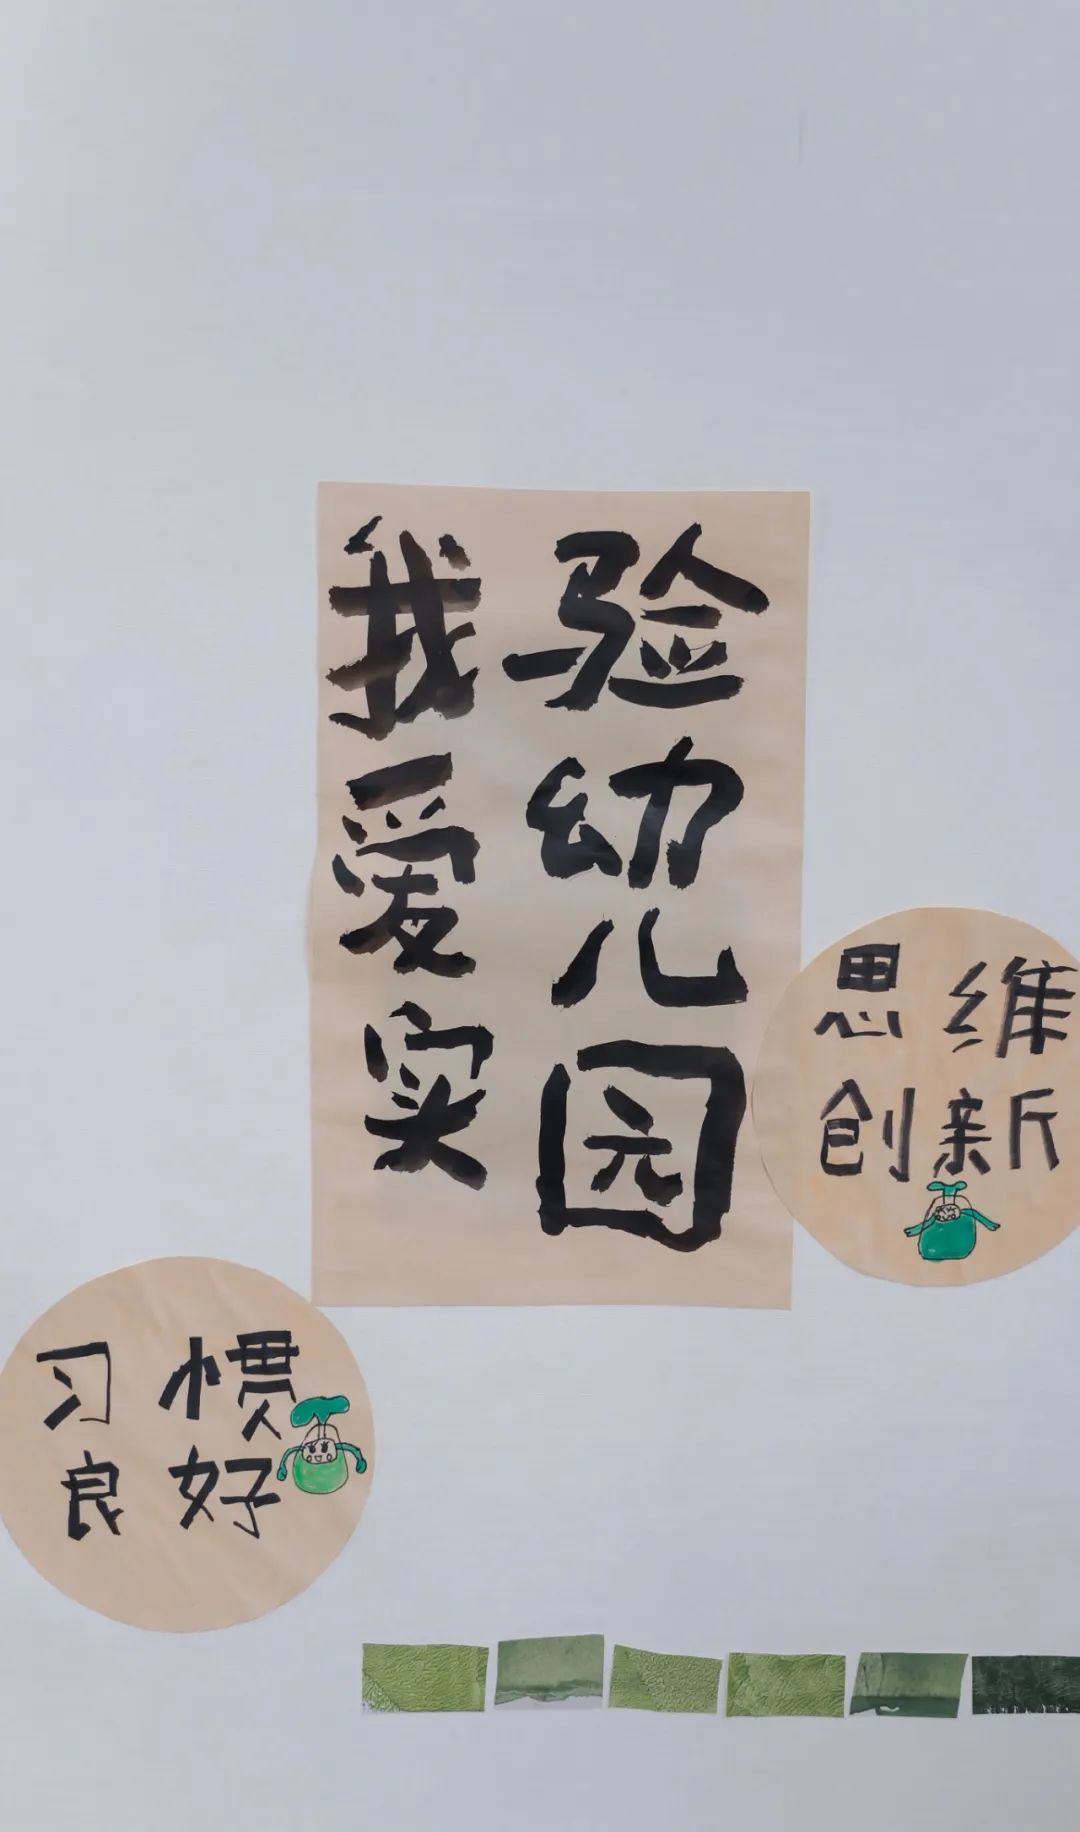 我爱实
验幼儿园
思维
创新
习惯
良好